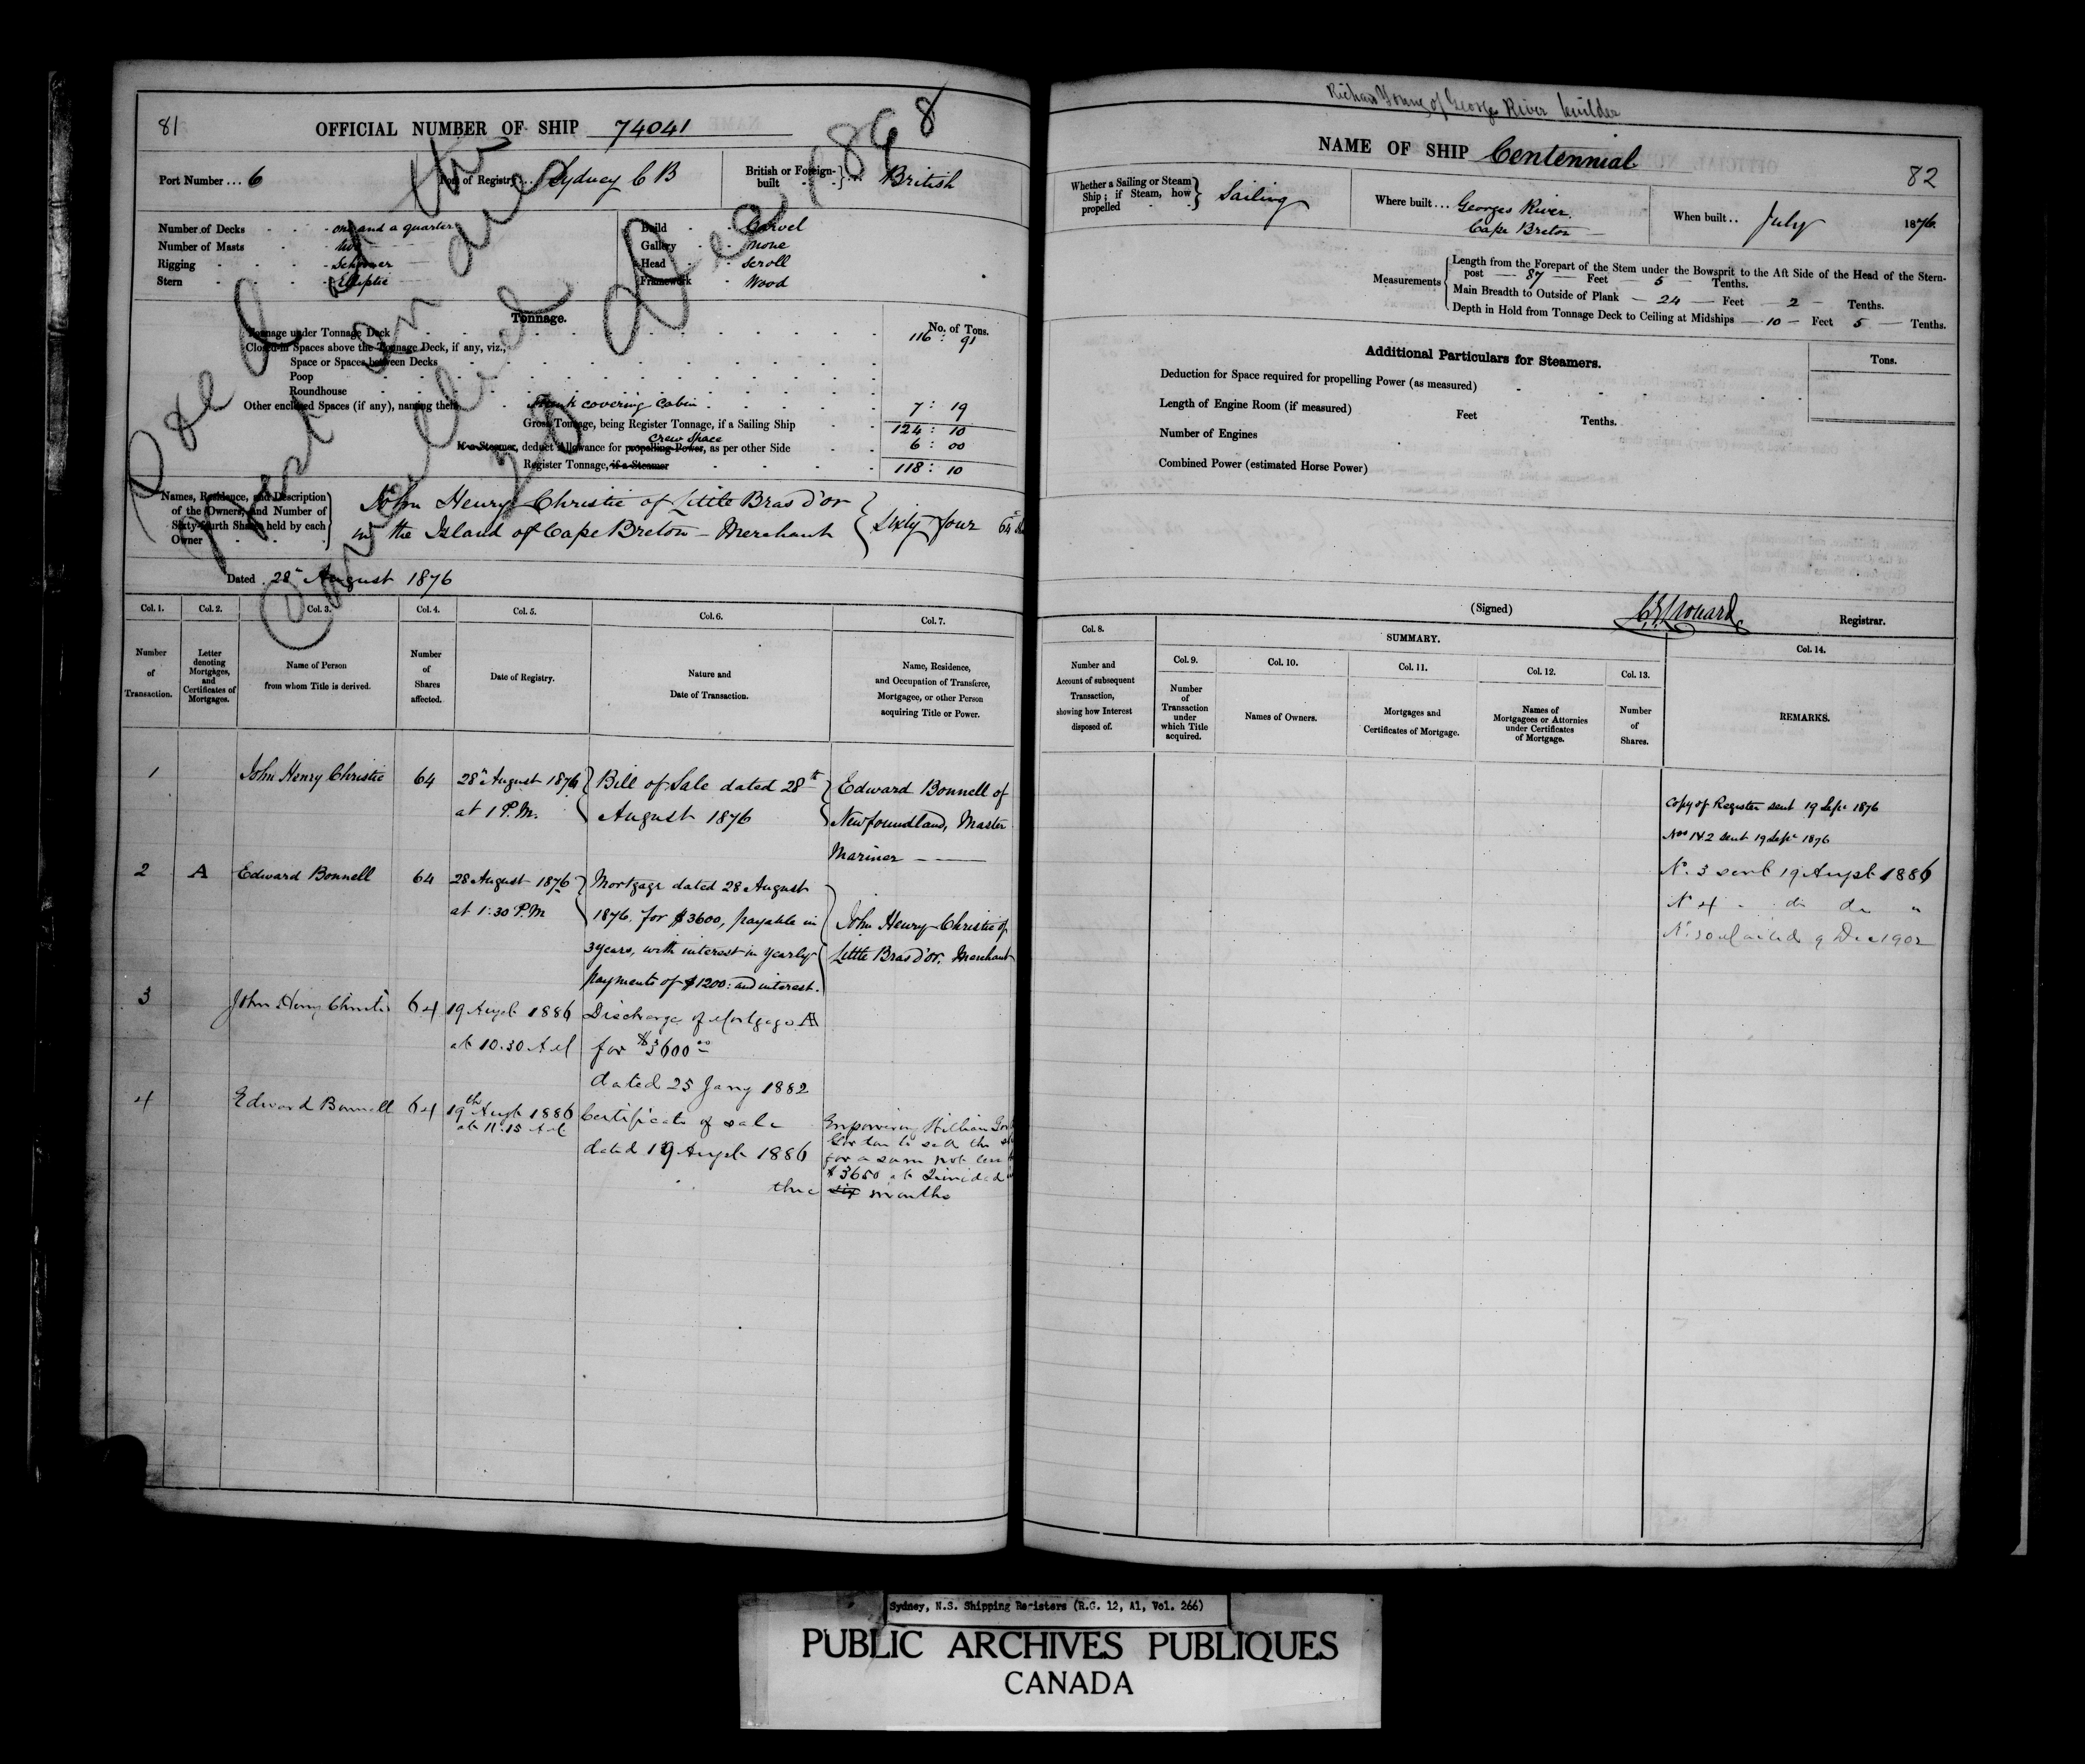 81
OFFICIAL NUMBER OF SHIP 74041
Port Number ... 6
Port of Registry ... Sydney C B
British or Foreign-built } ... British
Number of Decks - one and a quarter
Number of Masts - two
Rigging - Schooner
Stern - Elliptic
Build - Carvel
Gallery - None
Head - Scroll
Framework - Wood
Tonnage.
No. of Tons.
Tonnage under Tonnage Deck 116 : 91
Closed-in Spaces above the Tonnage Deck, if any, viz.;
Space or Spaces between Decks
Poop
Roundhouse
Other enclosed Spaces (if any), naming them Trunk covering Cabin 7 : 19
Gross Tonnage, being Register Tonnage, if a Sailing Ship 124 : 10
crew space
If a Steamer, deduct Allowance for propelling Power, as per other Side 6 : 00
Register Tonnage, if a Steamer 118 : 10
Names, Residence, and Description of the Owners, and Number of Sixty-fourth Shares held by each Owner
John Henry Christie of Little Bras d'or
in the Island of Cape Breton - Merchant } Sixty four 64
Dated 28th August 1876
Col. 1. Col. 2. Col. 3. Col. 4. Col. 5. Col. 6. Col. 7.
Number of Transaction.
Letter denoting Mortgages, and Certificates of Mortgages.
Name of Person from whom Title is derived.
Number of Shares affected.
Date of Registry.
Nature and Date of Transaction.
Name, Residence, and Occupation of Transferee, Mortgagee, or other Person acquiring Title or Power.
1 John Henry Christie 64 28th August 1876 Bill of Sale dated 28th Edward Bonnell of
at 1 P.M. August 1876 Newfoundland, Master
Mariner
2 A Edward Bonnell 64 28 August 1876 Mortgage dated 28 August
at 1:30 P.M 1876, for $3600, payable in John Henry Christie of
3 years, with interest in yearly Little Bras d'or, Merchant
payments of $1200: and interest.
3 John Henry Christie 64 19 Augst 1886 Discharge of Mortgage A
at 10.30 AM for $3600.00
dated 25 Jany 1882
4 Edward Bonnell 64 19th Augt 1886 Certificate of sale Empowering William
at 11.15 AM dated 19 Augst 1886 Gordon to sell the
for a sum not less
$3650 at Trinidad
three six months
Richard Young of Georges River builder
NAME OF SHIP Centennial
82
Whether a Sailing or Steam Ship; if Steam, how propelled } Sailing
Where built ... Georges River
Cape Breton
When built .. July 1876.
Measurements
Length from the Forepart of the Stem under the Bowsprit to the Aft Side of the Head of the Stern-
post 87 Feet 5 Tenths.
Main Breadth to Outside of Plank 24 Feet 2 Tenths.
Depth in Hold from Tonnage Deck to Ceiling at Midships 10 Feet 5 Tenths.
Additional Particulars for Steamers.
Tons.
Deduction for Space required for propelling Power (as measured)
Length of Engine Room (if measured) Feet Tenths.
Number of Engines
Combined Power (estimated Horse Power)
(Signed) Registrar.
Col. 8.
SUMMARY.
Col. 9. Col. 10. Col. 11. Col. 12. Col. 13. Col. 14.
Number and Account of subsequent Transaction, showing how Interest disposed of.
Number of Transaction under which Title acquired.
Names of Owners.
Mortgages and Certificates of Mortgage.
Names of Mortgagees or Attornies under Certificates of Mortgage.
Number of Shares.
REMARKS.
Copy of Register sent 19 Sept 1876
Nos 1 & 2 sent 19 Sept 1876
No. 3 sent 19 Augst 1886
No 4 - do do "
9 Dec 1902
Sydney, N.S. Shipping Registers (R.G. 12, A1, Vol. 266)
PUBLIC ARCHIVES PUBLIQUES
CANADA